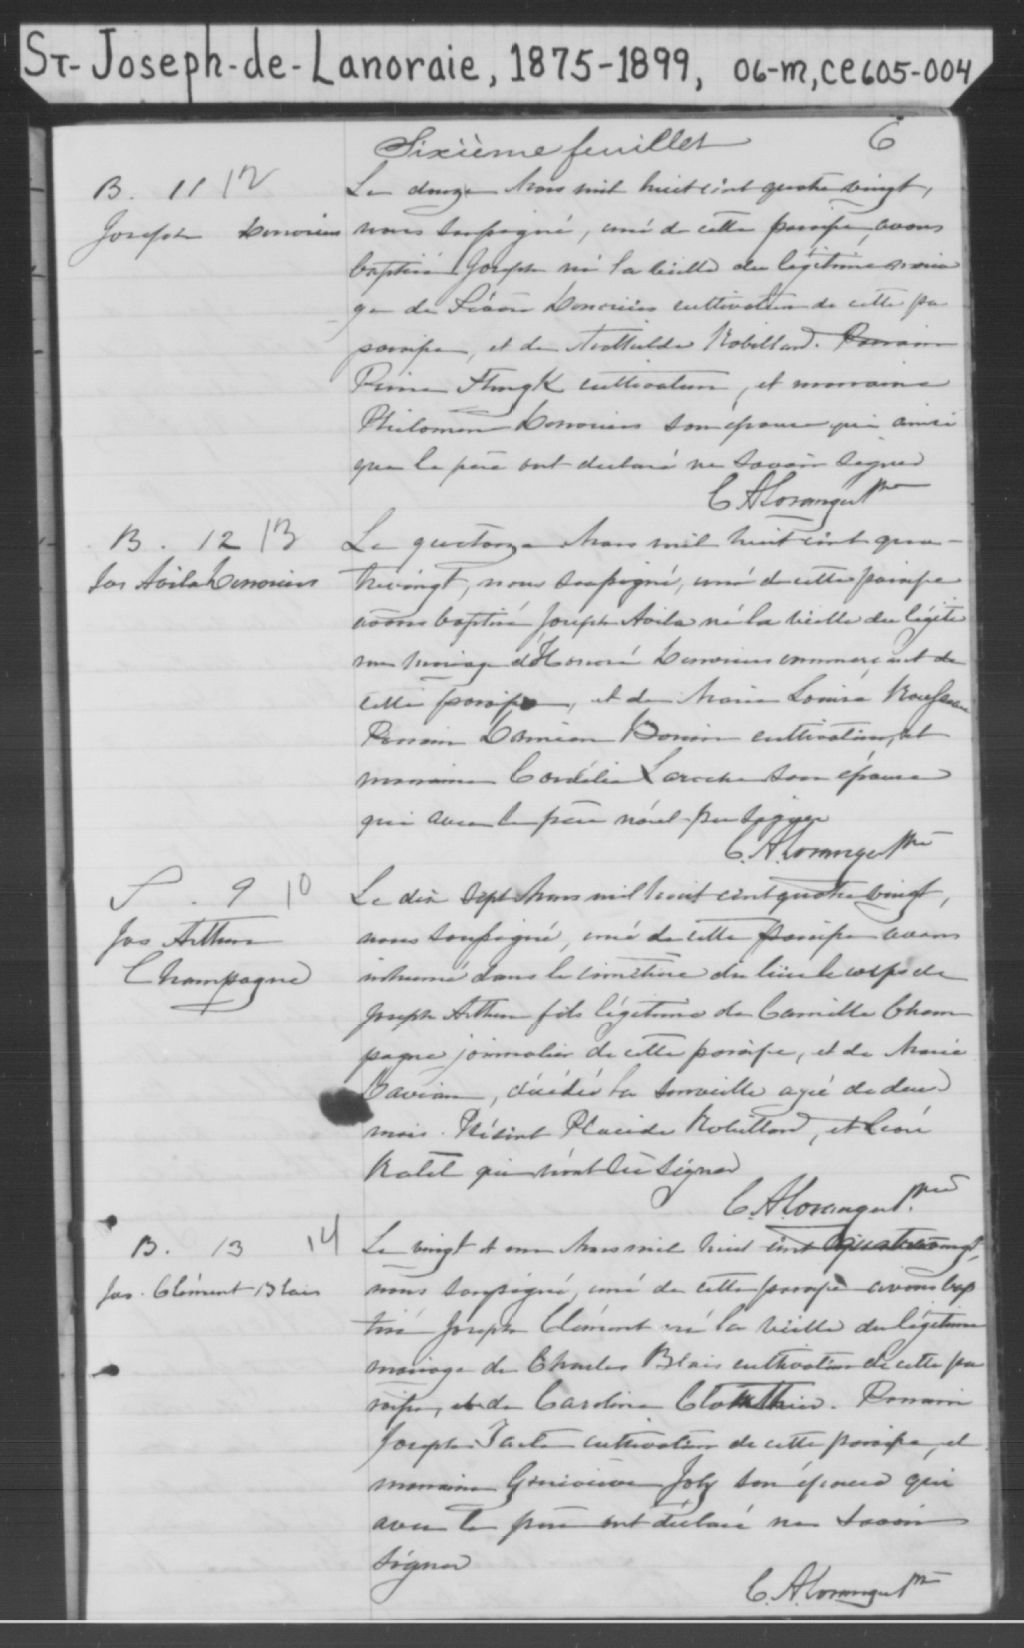 ST-Joseph-de-Lanoraie, 1875-1899, 06-M, CE605-004
Sixième feuillet 6
B. 11 12
Joseph
Le douze Mars mil huit cent quatre vingt,
nous soussigné, curé de cette paroisse, avons
baptisé Joseph né la veille du légitime maria
ge de cultivateur de cette pa
paroisse, et de Mathilde Robillard. Parrain
Pierre cultivateur, et marraine
Philomène son épouse qui ainsi
que le père ont declaré ne savoir signer
C. A. Loranger Ptre
B. 12 13
Jos Avila
Le quatorze Mars mil huit cent qua-
trevingt, nous soussigné, curé de cette paroisse
avons baptisé Joseph Avila né la veille du légiti
me mariage d'Honoré commerçant de
cette paroisse, et de Marie Louise Rousseau
Parrain Damien Bonin cultivateur, et
marraine Cordélie Laroche son épouse
qui avec le père n'ont pu signer
C. A. Loranger Ptre
S. 9 10
Jos Arthur
Champagne
Le dix sept Mars mil huit cent quatre vingt,
nous soussigné, curé de cette paroisse avons
inhumé dans le cimetière du lieu le corps de
Joseph Arthur fils légitime de Camille Cham
pagne journalier de cette paroisse, et de Marie
, décédé la surveille agé de deux
mois. Présent Placide Robillard, et
qui n'ont su signer
C. A. Loranger Ptre
B. 13 14
Jos. Clément Blais
Le vingt et un Mars mil huit cent quatrevingt,
nous soussigné, curé de cette paroisse avons bap
tisé Joseph Clément né la veille du légitime
mariage de Charles Blais cultivateur de cette pa
roisse, et de Caroline . Parrain
Joseph cultivateur de cette paroisse, et
marraine Geneviève Joly son épouse qui
avec le père ont déclaré ne savoir
signer
C. A. Loranger Ptre